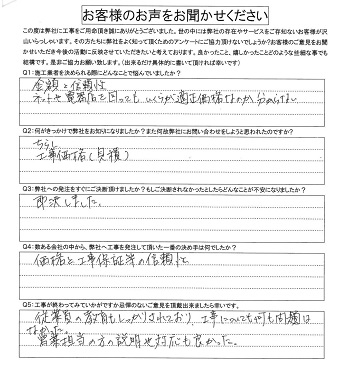 お客様のお声をお聞かせください
この度は弊社に工事をご用命頂き誠にありがとうございました。世の中には弊社の存在やサービスをご存知ないお客様が沢
山いらっしゃいます。その方たちに弊社をよく知って頂くためのアンケートにご協力頂けないでしょうか?お客様のご意見をお聞
かせいただき今後の活動に反映させていただきたいと考えております。良かったこと、嬉しかったことどのような些細な事でも
結構です。是非ご協力お願い致します。(出来るだけ具体的に書いて頂ければ幸いです)
Q1:施工業者を決められる際にどんなことで悩んでいましたか?
金額と信頼性
ネットと電器店を回っても、いくらが適正価格なのか分からない
Q2:何がきっかけで弊社をお知りになりましたか?また何故弊社にお問い合わせをしようと思われたのですか?
ちらし
工事価格(見積)
Q3:弊社への発注をすぐにご決断頂けましたか?もしご決断されなかったとしたらどんなことが不安になりましたか?
即決しました。
Q4:数ある会社の中から、弊社へ工事を発注して頂いた一番の決め手は何でしたか?
価格と工事保証等の信頼性
Q5:工事が終わってみていかがですか忌憚のないご意見を頂戴出来ましたら幸いです。
従業員の教育もしっかりされており、工事についても何も問題は
なかった。
営業担当の方の説明や対応も良かった。